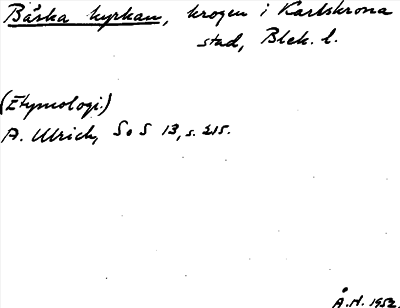 Båska kyrkan, krogen i Karlskrona
stad, Blek. l.
(Etymologi.)
A. Ulrich, SoS 13, s. 215.
Å.H. 1952.